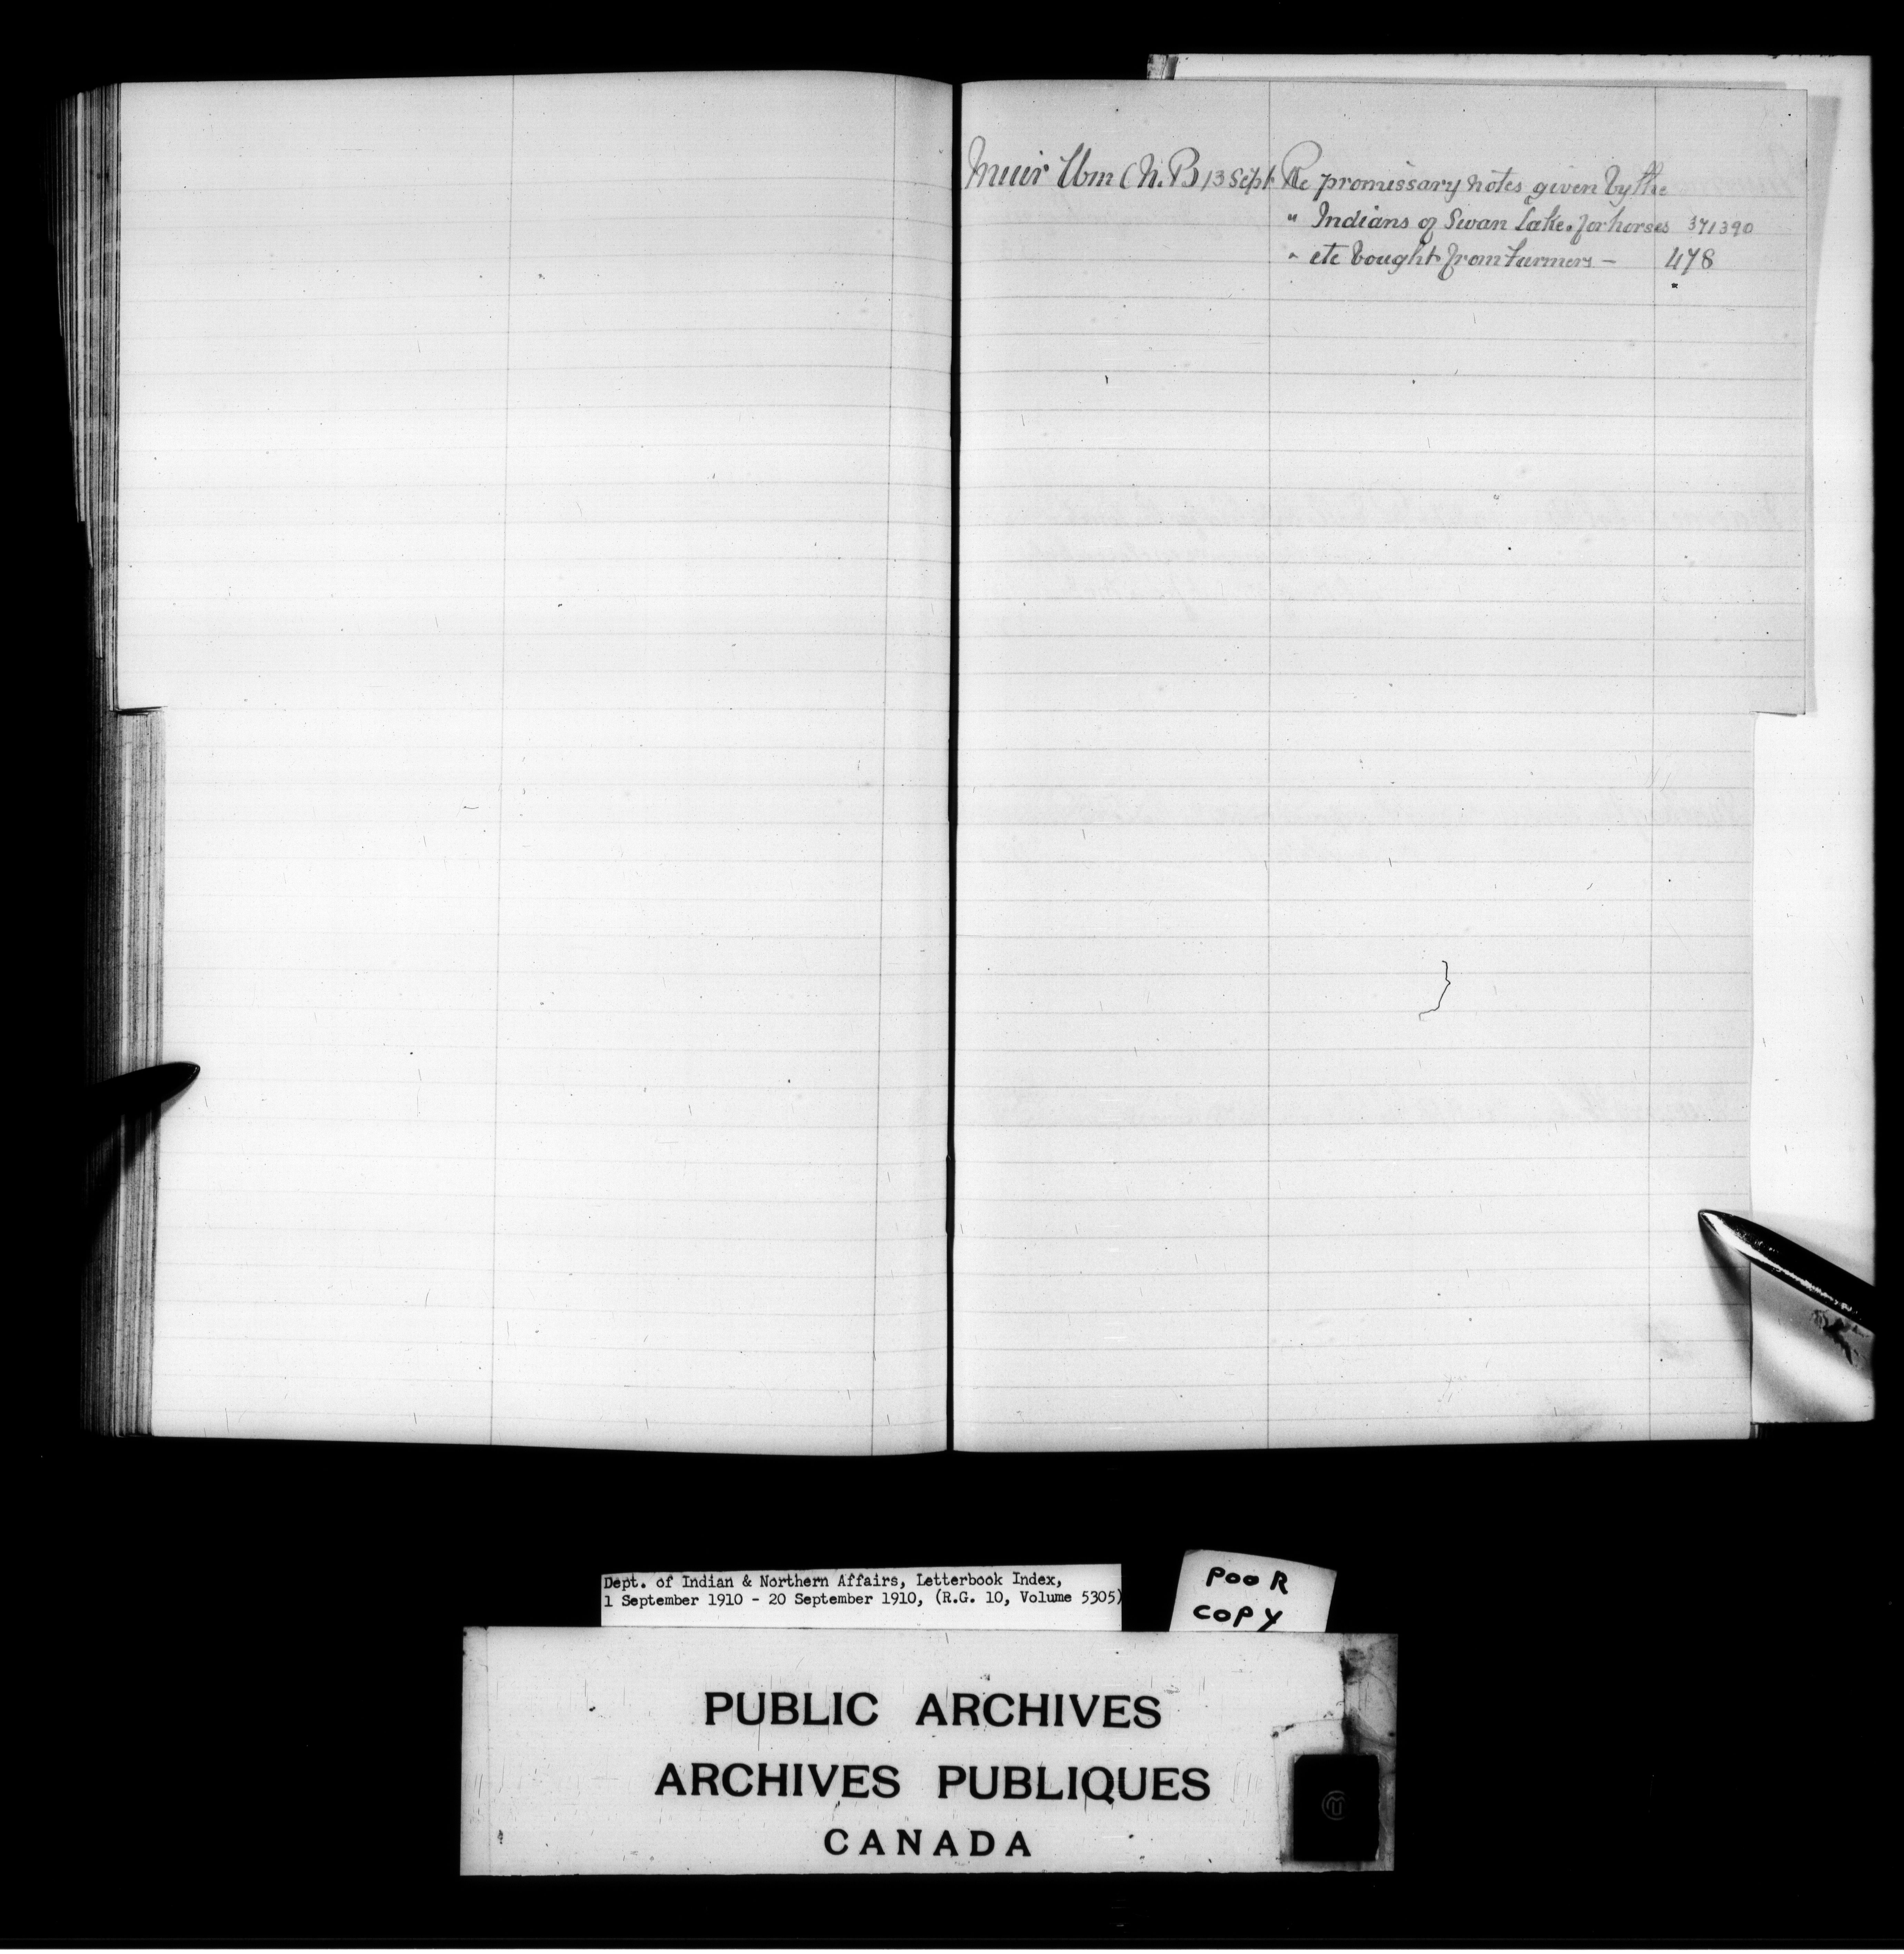 Muir Wm (N.B) 13 Sept Re promissary notes given by the
" Indians of Swan Lake. for horses 371390
" etc bought from farmers - 478
"
Dept. of Indian & Northern Affairs, Letterbook Index,
1 September 1910 - 20 September 1910, (R.G. 10, Volume 5305)
POOR
COPY
PUBLIC ARCHIVES
ARCHIVES PUBLIQUES
CANADA